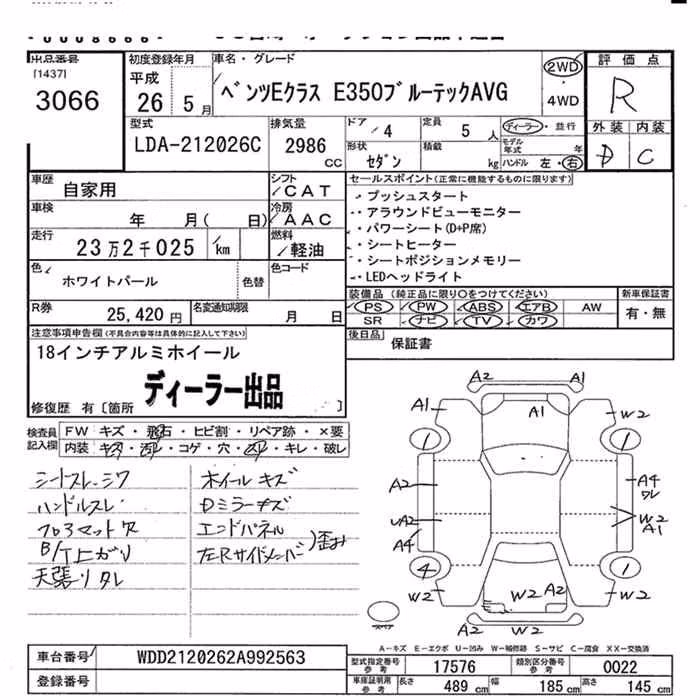 出品番号
[1437]
3066
初度登録年月
平成
26 5月
車名・グレード
ベンツEクラス E350ブルーテックAVG
2WD
・
4WD
評価点
R
外装 内装
D C
型式
LDA-212026C
排気量
2986 cc
ドア
4
定員
5 人
形状
セダン
積載
kg
ディーラー・並行
モデル年式 年
ハンドル 左・右
車歴
自家用
シフト
CAT
車検
年 月( 日)
冷房
AAC
走行
23万2千025 km
燃料
軽油
色
ホワイトパール
色替
色コード
R券
25,420円
名変通知期限
月 日
セールスポイント(正常に機能するものに限ります)
・プッシュスタート
・アラウンドビューモニター
・パワーシート(D+P席)
・シートヒーター
・シートポジションメモリー
・LEDヘッドライト
装備品 (純正品に限り○をつけてください)
PS PW ABS エアB AW
SR ナビ TV カワ
新車保証書
有・無
後日品
保証書
注意事項申告欄(不具合内容等は具体的に記入して下さい)
18インチアルミホイール
ディーラー出品
修復歴 有〔箇所 〕
検査員記入欄
FW キズ・飛石・ヒビ割・リペア跡・×要
内装・キズ・汚れ・コゲ・穴・凹・キレ・破レ
シートスレ・シワ
ハンドルスレ
フロアマット欠
B/T上がり
天張りタレ
ホイールキズ
Dミラーキズ
エンドパネル
左Rサイドメンバー
)歪み
A2 A1
A1 A1 W2
1 1
A2 A4
ワレ
A2 W2
A1
A4
4 1
W2 W2 A2 W2
A2 W2
スペア
A-キズ E-エクボ U-凹み W-補修跡 S-サビ C-腐食 XX-交換済
車台番号
WDD2120262A992563
登録番号
型式指定番号
参考
17576
類別区分番号
参考
0022
車庫証明用
参考
長さ 489 cm 幅 185 cm 高さ 145 cm